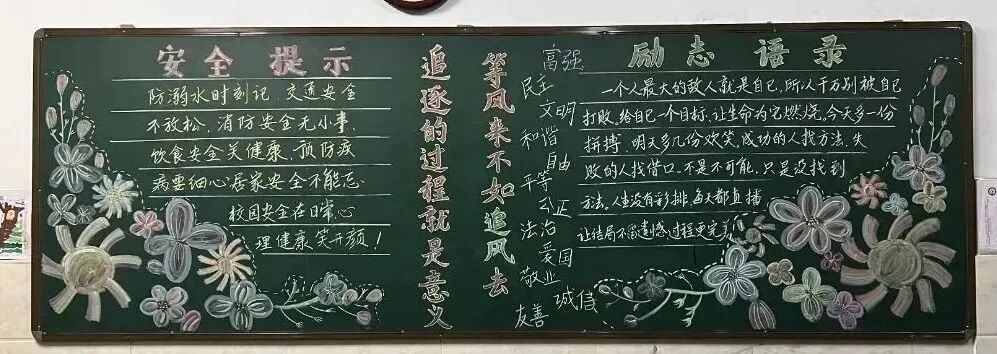 安全提示
防溺水时刻记、交通安全
不放松、消防安全无小事、
饮食安全关健康、预防疾
病要细心居家安全不能忘
校园安全在日常心
理健康笑开颜！
追逐的过程就是意义
等风来不如追风去
高强
民主
文明
和谐
自由
平等
公正
法治
爱国
敬业
诚信
友善
励志语录
一个人最大的敌人就是自己，所以千万别被自己
打败，给自己一个目标，让生命为它燃烧。今天多一份
拼搏，明天多几份欢笑。成功的人找方法，失
败的人找借口。不是不可能，只是没找到
方法。人生没有彩排每天都直播
让结局不留遗憾过程更完美